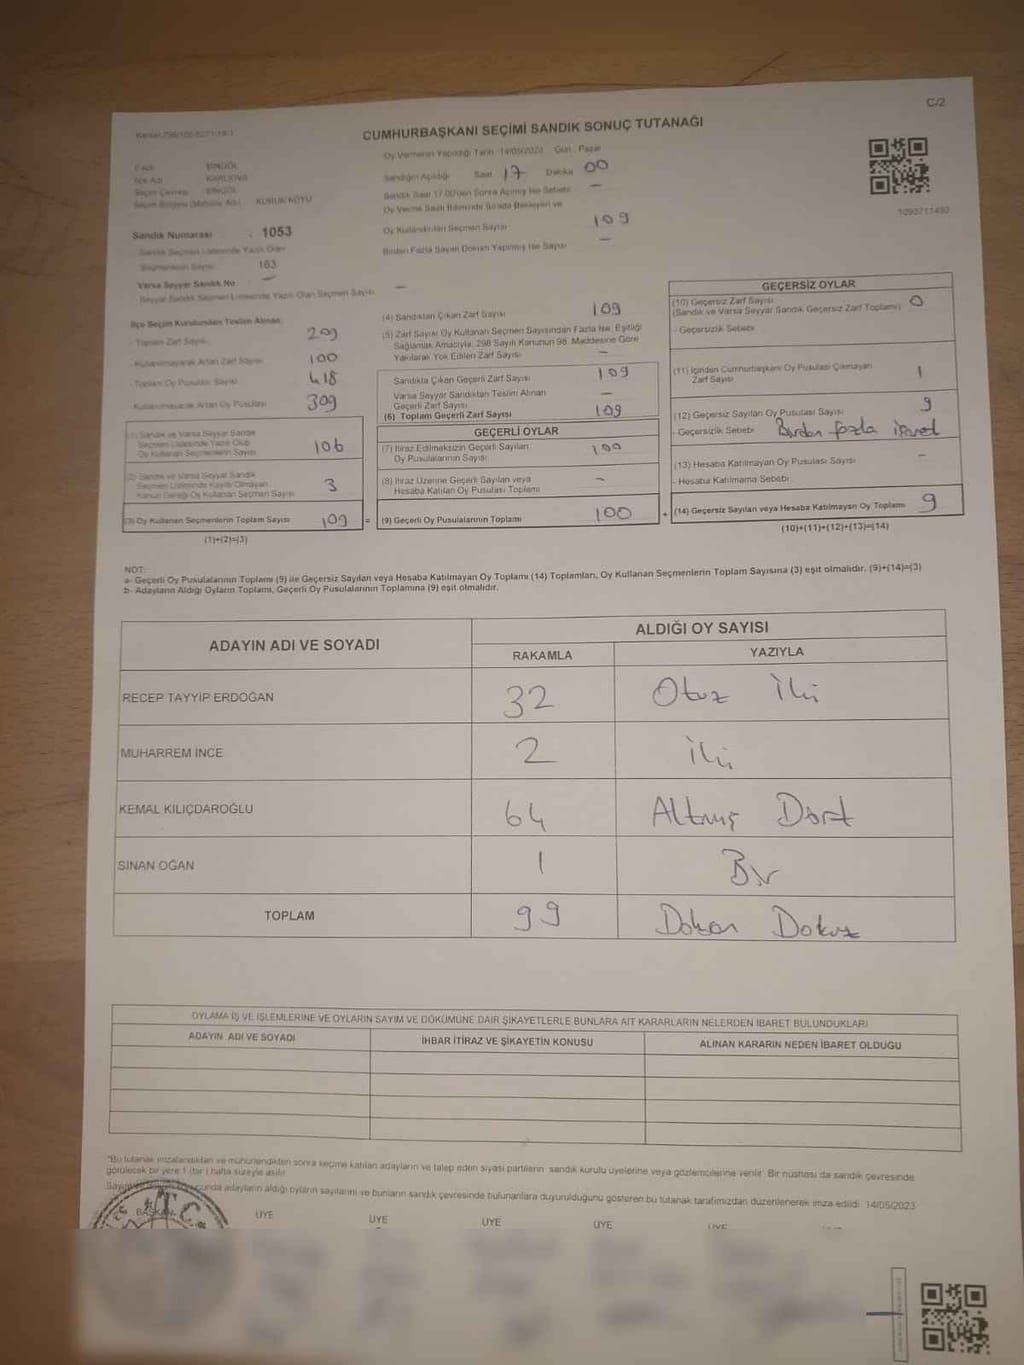 C/2
CUMHURBAŞKANI SEÇİMİ SANDIK SONUÇ TUTANAĞI
Oy Vermenin Yapıldığı Tarih : 14/05/2023 Gün : Pazar
Sandığın Açıldığı Saat 17 Dakika 00
İl Adı BİNGÖL
İlçe Adı KARLIOVA
Seçim Çevresi BİNGÖL
Seçim Bölgesi (Mahalle Adı)
Sandık Saat 17:00'den Sonra Açılmış İse Sebebi -
Oy Verme Saati Bitiminde Sırada Bekleyen ve
Oy Kullandırılan Seçmen Sayısı 109
Birden Fazla Sayım Döküm Yapılmış İse Sayısı -
Sandık Numarası : 1053
Sandık Seçmen Listesinde Yazılı Olan
Seçmenlerin Sayısı 163
Varsa Seyyar Sandık No -
Seyyar Sandık Seçmen Listesinde Yazılı Olan Seçmen Sayısı -
İlçe Seçim Kurulundan Teslim Alınan:
Toplam Zarf Sayısı 209
Kullanılmayarak Artan Zarf Sayısı 100
Toplam Oy Pusulası Sayısı 418
Kullanılmayarak Artan Oy Pusulası 309
(1) Sandık ve Varsa Seyyar Sandık
Seçmen Listesinde Yazılı Olup
Oy Kullanan Seçmenlerin Sayısı 106
(2) Sandık ve Varsa Seyyar Sandık
Seçmen Listesinde Kayıtlı Olmayan
Kanun Gereği Oy Kullanan Seçmen Sayısı 3
(3) Oy Kullanan Seçmenlerin Toplam Sayısı 109 =
(1)+(2)=(3)
(4) Sandıktan Çıkan Zarf Sayısı 109
(5) Zarf Sayısı Oy Kullanan Seçmen Sayısından Fazla İse, Eşitliği
Sağlamak Amacıyla, 298 Sayılı Kanunun 98. Maddesine Göre
Yakılarak Yok Edilen Zarf Sayısı -
Sandıkta Çıkan Geçerli Zarf Sayısı 109
Varsa Seyyar Sandıktan Teslim Alınan
Geçerli Zarf Sayısı -
(6) Toplam Geçerli Zarf Sayısı 109
GEÇERLİ OYLAR
(7) İtiraz Edilmeksizin Geçerli Sayılan
Oy Pusulalarının Sayısı 100
(8) İtiraz Üzerine Geçerli Sayılan veya
Hesaba Katılan Oy Pusulası Toplamı -
(9) Geçerli Oy Pusulalarının Toplamı 100 +
GEÇERSİZ OYLAR
(10) Geçersiz Zarf Sayısı 0
(Sandık ve Varsa Seyyar Sandık Geçersiz Zarf Toplamı)
- Geçersizlik Sebebi
(11) İçinden Cumhurbaşkanı Oy Pusulası Çıkmayan
Zarf Sayısı 1
(12) Geçersiz Sayılan Oy Pusulası Sayısı 9
- Geçersizlik Sebebi Birden fazla işaret
(13) Hesaba Katılmayan Oy Pusulası Sayısı -
- Hesaba Katılmama Sebebi
(14) Geçersiz Sayılan veya Hesaba Katılmayan Oy Toplamı 9
(10)+(11)+(12)+(13)=(14)
1093711493
NOT:
a- Geçerli Oy Pusulalarının Toplamı (9) ile Geçersiz Sayılan veya Hesaba Katılmayan Oy Toplamı (14) Toplamları, Oy Kullanan Seçmenlerin Toplam Sayısına (3) eşit olmalıdır. (9)+(14)=(3)
b- Adayların Aldığı Oyların Toplamı, Geçerli Oy Pusulalarının Toplamına (9) eşit olmalıdır.
ADAYIN ADI VE SOYADI ALDIĞI OY SAYISI
RAKAMLA YAZIYLA
RECEP TAYYİP ERDOĞAN 32 Otuz İki
MUHARREM İNCE 2 İki
KEMAL KILIÇDAROĞLU 64 Altmış Dört
SİNAN OĞAN 1 Bir
TOPLAM 99 Doksan Dokuz
OYLAMA İŞ VE İŞLEMLERİNE VE OYLARIN SAYIM VE DÖKÜMÜNE DAİR ŞİKAYETLERLE BUNLARA AİT KARARLARIN NELERDEN İBARET BULUNDUKLARI
ADAYIN ADI VE SOYADI İHBAR İTİRAZ VE ŞİKAYETİN KONUSU ALINAN KARARIN NEDEN İBARET OLDUĞU
*Bu tutanak imzalandıktan ve mühürlendikten sonra seçime katılan adayların ve talep eden siyasi partilerin sandık kurulu üyelerine veya gözlemcilerine verilir. Bir nüshası da sandık çevresinde
görülecek bir yere 1 (bir) hafta süreyle asılır.
adayların aldığı oyların sayılarını ve bunların sandık çevresinde bulunanlara duyurulduğunu gösteren bu tutanak tarafımızdan düzenlenerek imza edildi. 14/05/2023
BAŞKAN ÜYE ÜYE ÜYE ÜYE ÜYE
T.C.